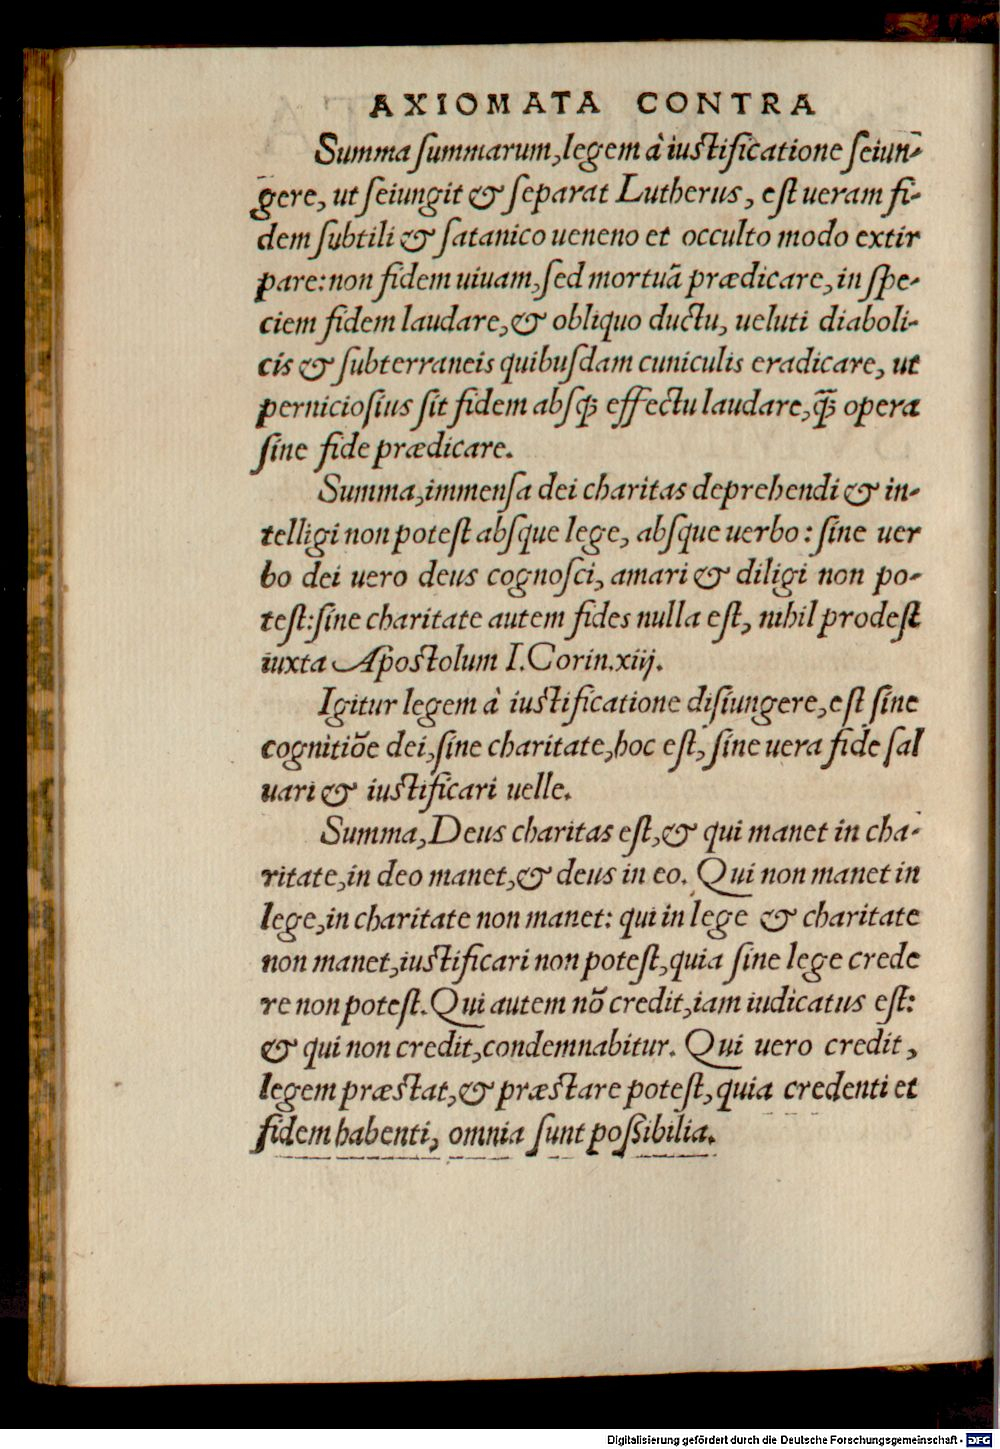 AXIOMATA CONTRA
Summa ſummarum, legem à iuſtificatione ſeiun-
gere, ut ſeiungit & ſeparat Lutherus, eſt ueram fi-
dem ſubtili & ſatanico ueneno et occulto modo extir
pare: non fidem uiuam, ſed mortuā prædicare, in ſpe-
ciem fidem laudare, & obliquo ductu, ueluti diaboli-
cis & ſubterraneis quibuſdam cuniculis eradicare, ut
pernicioſius ſit fidem abſq; effectu laudare, q̄ opera
ſine fide prædicare.
Summa, immenſa dei charitas deprehendi & in-
telligi non poteſt abſque lege, abſque uerbo: ſine uer
bo dei uero deus cognoſci, amari & diligi non po-
teſt: ſine charitate autem fides nulla eſt, nihil prodeſt
iuxta Apoſtolum I. Corin. xiij.
Igitur legem à iuſtificatione diſiungere, eſt ſine
cognitiōe dei, ſine charitate, hoc eſt, ſine uera fide ſal
uari & iuſtificari uelle.
Summa, Deus charitas eſt, & qui manet in cha-
ritate, in deo manet, & deus in eo. Qui non manet in
lege, in charitate non manet: qui in lege & charitate
non manet, iuſtificari non poteſt, quia ſine lege crede
re non poteſt. Qui autem nō credit, iam iudicatus eſt:
& qui non credit, condemnabitur. Qui uero credit,
legem præſtat, & præſtare poteſt, quia credenti et
fidem habenti, omnia ſunt poſſibilia.
Digitalisierung gefördert durch die Deutsche Forschungsgemeinschaft - DFG